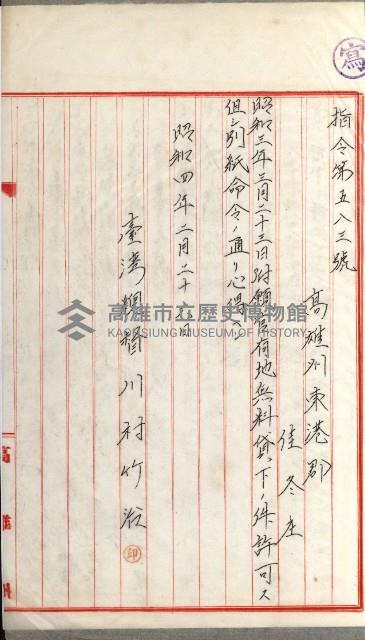 寫
指令第五八三號
高雄州東港郡
佳冬庄
昭和三年三月二十三日附願官有地無料貸下ノ件許可ス
但シ別紙命令ノ通リ心得ヘシ
昭和四年二月二十日
臺灣總督 川村竹治
印
高雄市立歷史博物館
KAOHSIUNG MUSEUM OF HISTORY
高雄州